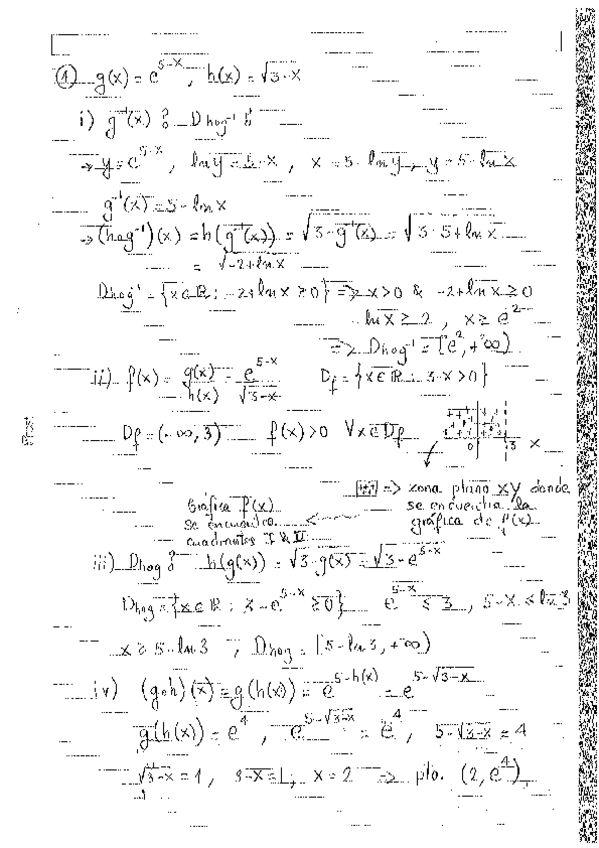 ① g(x) = e^{5-x}, h(x) = √(3-x)
i) g⁻¹(x)? D hog⁻¹?
→ y = e^{5-x}, ln y = 5-x, x = 5-ln y, y = 5-ln x
g⁻¹(x) = 5-ln x
→ (hog⁻¹)(x) = h(g⁻¹(x)) = √(3-g⁻¹(x)) = √(3-5+ln x)
= √(-2+ln x)
Dhog⁻¹ = {x∈ℝ : -2+ln x ≥ 0} => x>0 & -2+ln x ≥ 0
ln x ≥ 2, x ≥ e²
=> Dhog⁻¹ = [e², +∞)
ii) f(x) = g(x)/h(x) = e^{5-x}/√(3-x) Df = {x∈ℝ : 3-x>0}
Df = (-∞, 3) f(x)>0 ∀x∈Df
0 3 x
=> zona plano XY donde
se encuentra la
gráfica de f(x)
Gráfica f(x)
se encuentra
cuadrantes I & II
iii) Dhog? h(g(x)) = √(3-g(x)) = √(3-e^{5-x})
Dhog = {x∈ℝ : 3-e^{5-x} ≥ 0} e^{5-x} ≤ 3, 5-x ≤ ln 3
x ≥ 5-ln 3, Dhog = [5-ln 3, +∞)
iv) (goh)(x) = g(h(x)) = e^{5-h(x)} = e^{5-√(3-x)}
g(h(x)) = e⁴, e^{5-√(3-x)} = e⁴, 5-√(3-x) = 4
√(3-x) = 1, 3-x = 1, x = 2 => pto. (2, e⁴)